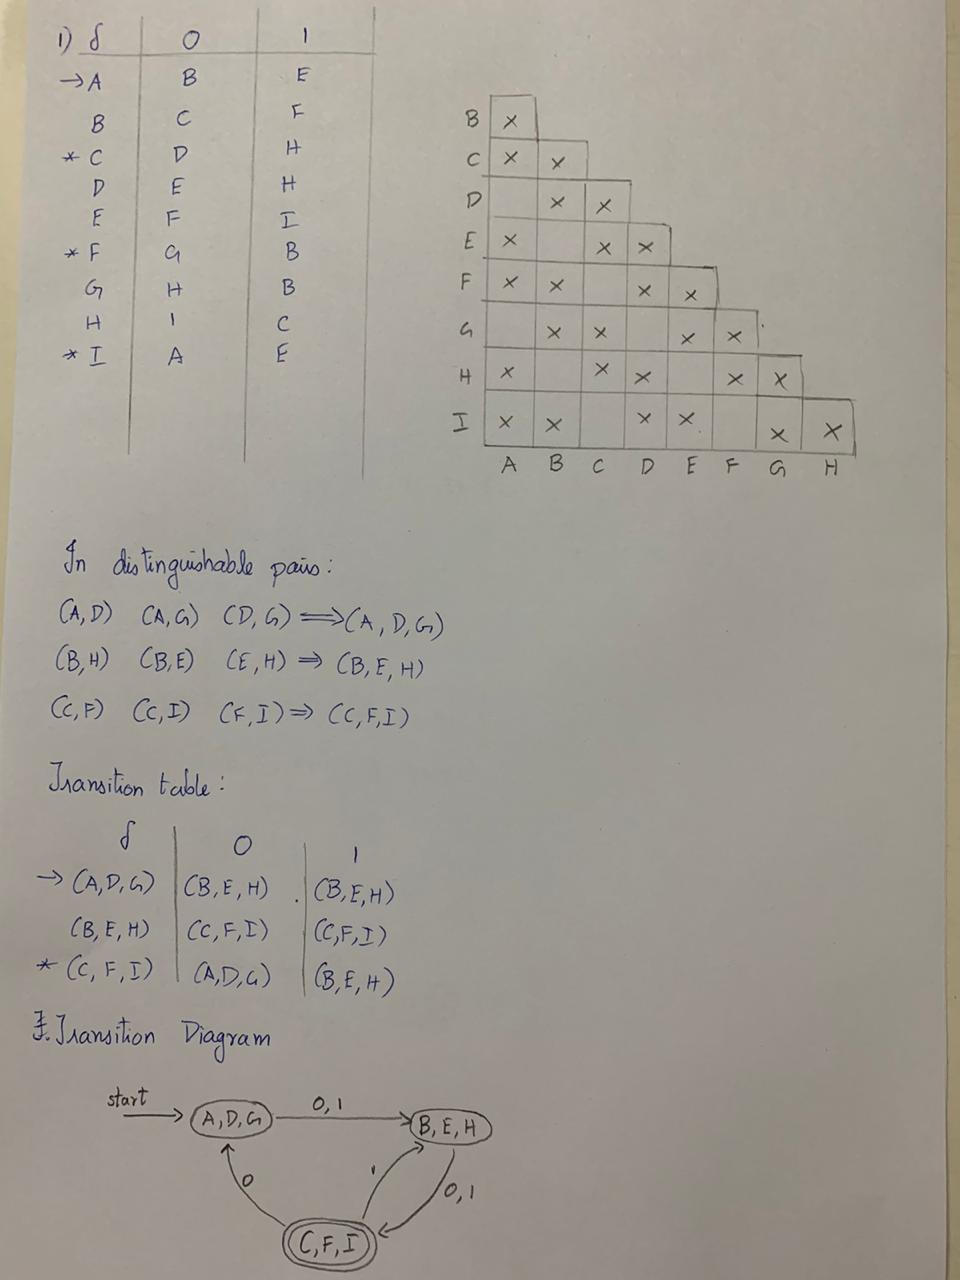 1) δ 0 1
→A B E
B C F
* C D H
D E H
E F I
* F G B
G H B
H I C
* I A E
B x
C x x
D x x
E x x x
F x x x x
G x x x x
H x x x x x
I x x x x x x
A B C D E F G H
In distinguishable pairs:
(A,D) (A,G) (D,G) ⟹ (A, D, G)
(B,H) (B,E) (E,H) ⇒ (B, E, H)
(C,F) (C,I) (F,I) ⇒ (C,F,I)
Transition table:
δ 0 1
→ (A,D,G) (B,E,H) (B,E,H)
(B,E,H) (C,F,I) (C,F,I)
* (C, F, I) (A,D,G) (B,E,H)
Transition Diagram
start
A,D,G 0,1 B, E, H
0 1 0,1
C,F,I